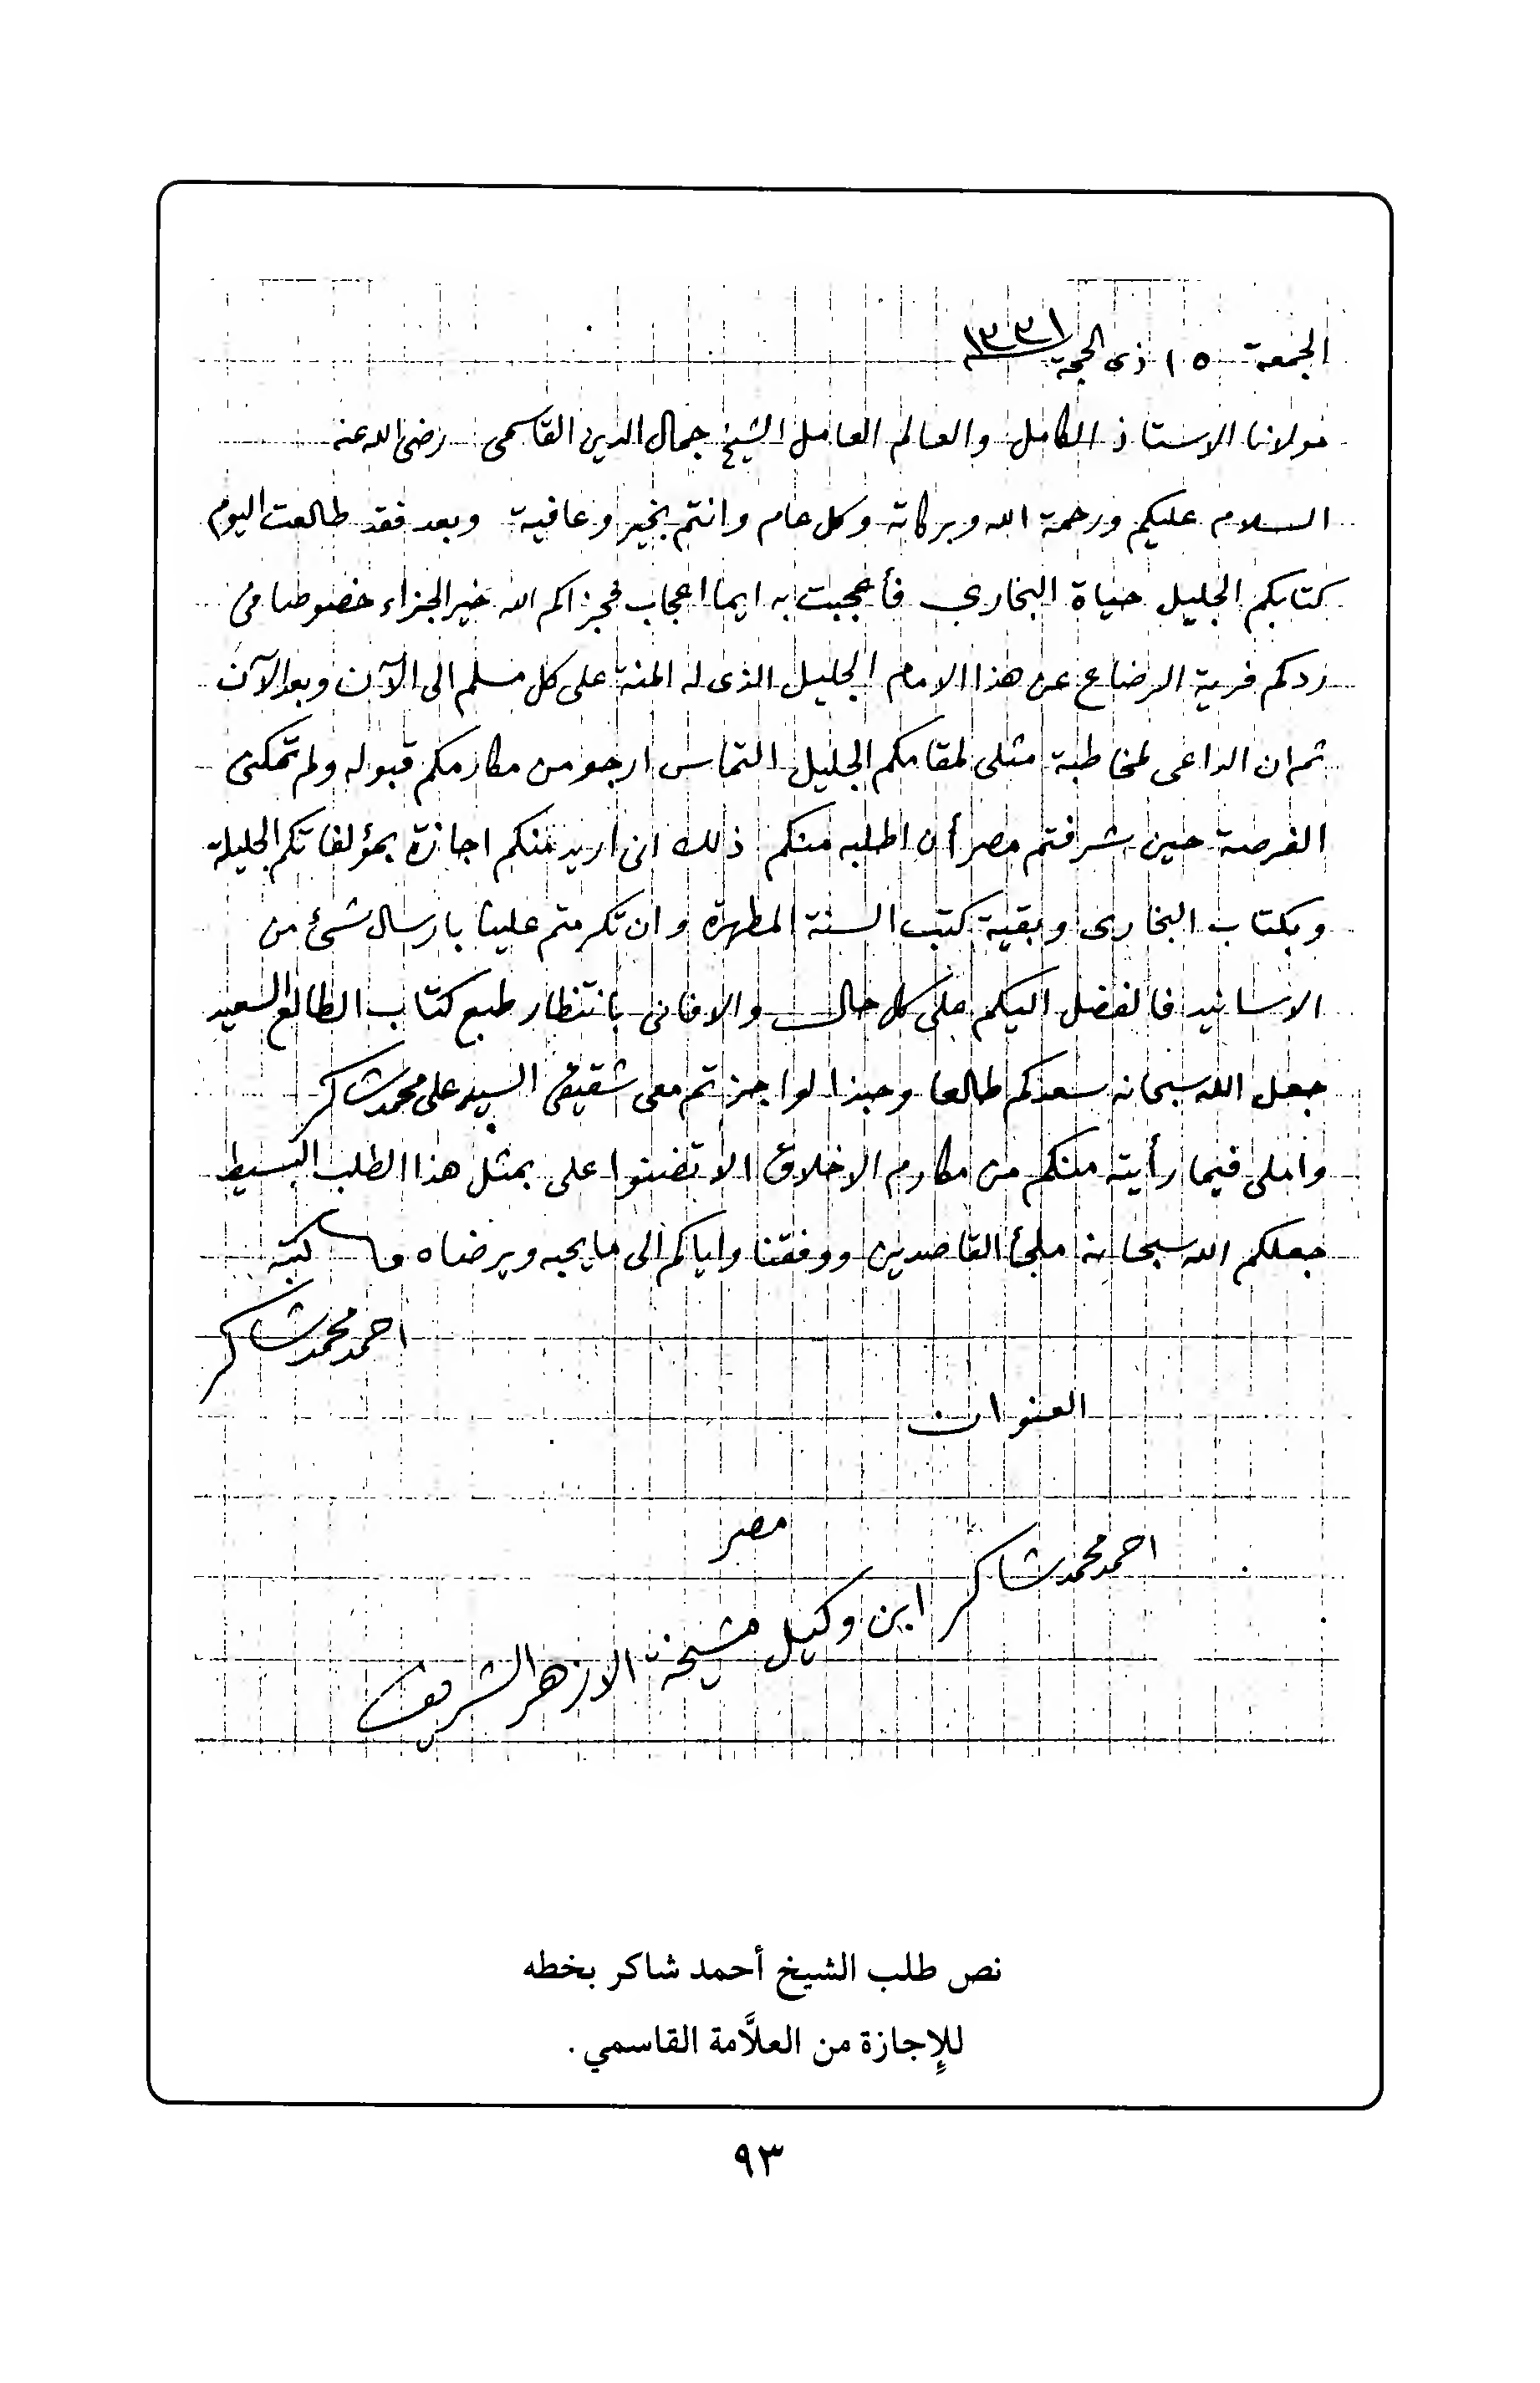 الجمعة ١٥ ذى الحجة ١٣٣١
مولانا الاستاذ الكامل والعالم العامل الشيخ جمال الدين القاسمى رضى الله عنه
السلام عليكم ورحمة الله وبركاته وكل عام وانتم بخير وعافية وبعد فقد طالعت اليوم
كتابكم الجليل حياة البخارى فأعجبت به ايما اعجاب فجزاكم الله خير الجزاء خصوصا فى
ردكم فرية الرضاع عن هذا الامام الجليل الذى له المنة على كل مسلم الى الآن وبعد الآن
ثم ان الداعى لمخاطبة مثلى لمقامكم الجليل التماس ارجو من مكارمكم قبوله ولم تمكنى
الفرصة حين شرفتم مصر أن اطلبه منكم ذلك انى اريد منكم اجازة بمؤلفاتكم الجليلة
وبكتاب البخارى وبقية كتب السنة المطهرة وان تكرمتم علينا بارسال شئ من
الاسانيد فالفضل اليكم على كل حال والا فانى بانتظار طبع كتاب الطالع السعيد
جعل الله سبحانه سعدكم طالعا وحبذا لو اجزتم معى شقيقى السيد على محمد شاكر
واملى فيما رأيته منكم من مكارم الاخلاق الا تضنوا على بمثل هذا الطلب البسيط
جعلكم الله سبحانه ملجأ القاصدين ووفقنا واياكم الى ما يحبه ويرضاه كتبه
احمد محمد شاكر
العنوان
مصر
احمد محمد شاكر ابن وكيل مشيخة الازهر الشريف
نص طلب الشيخ أحمد شاكر بخطه
للإجازة من العلَّامة القاسمي .
٩٣